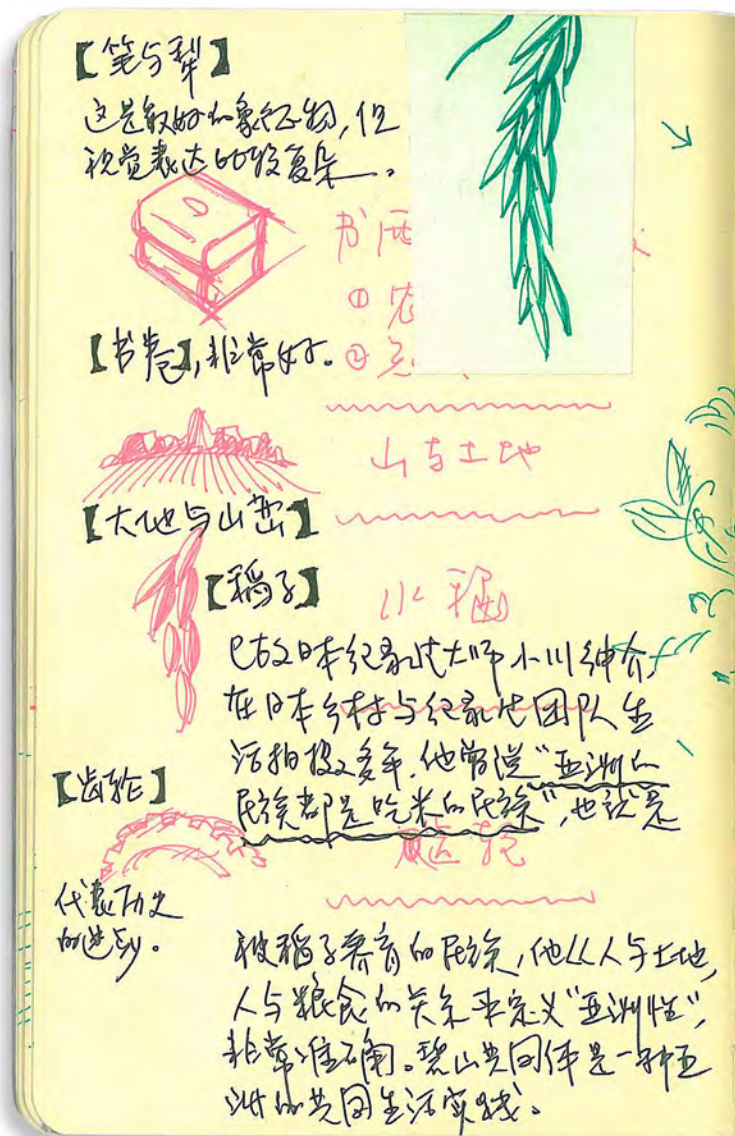 【笔与犁】
这是最好的象征物，但
视觉表达比较复杂。
书
① 农
②
【书卷】，非常好。
山与土地
【大地与山峦】
【稻子】
水稻
已故日本纪录片大师小川绅介，
在日本乡村与纪录片团队生
活拍摄多年，他常说“亚洲的
民族都是吃米的民族”，也就是
【齿轮】
齿轮
代表历史
的进步。
被稻子养育的民族，他从人与土地，
人与粮食的关系来定义“亚洲性”，
非常准确。碧山共同体是一种亚
洲的共同生活实践。